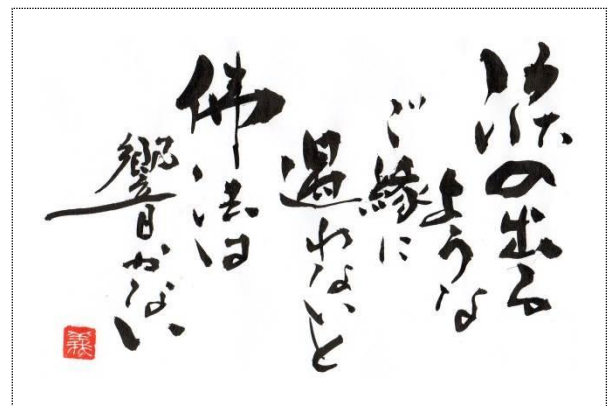 涙の出る
ような
ご縁に
遇わないと
佛法は
響かない
義